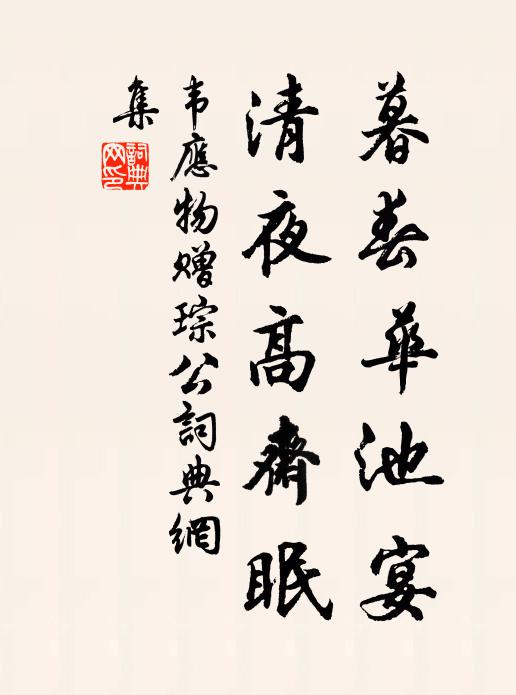 暮春華池宴
清夜高齋眠
韦應物贈琮公詞典網
集
詞典網印